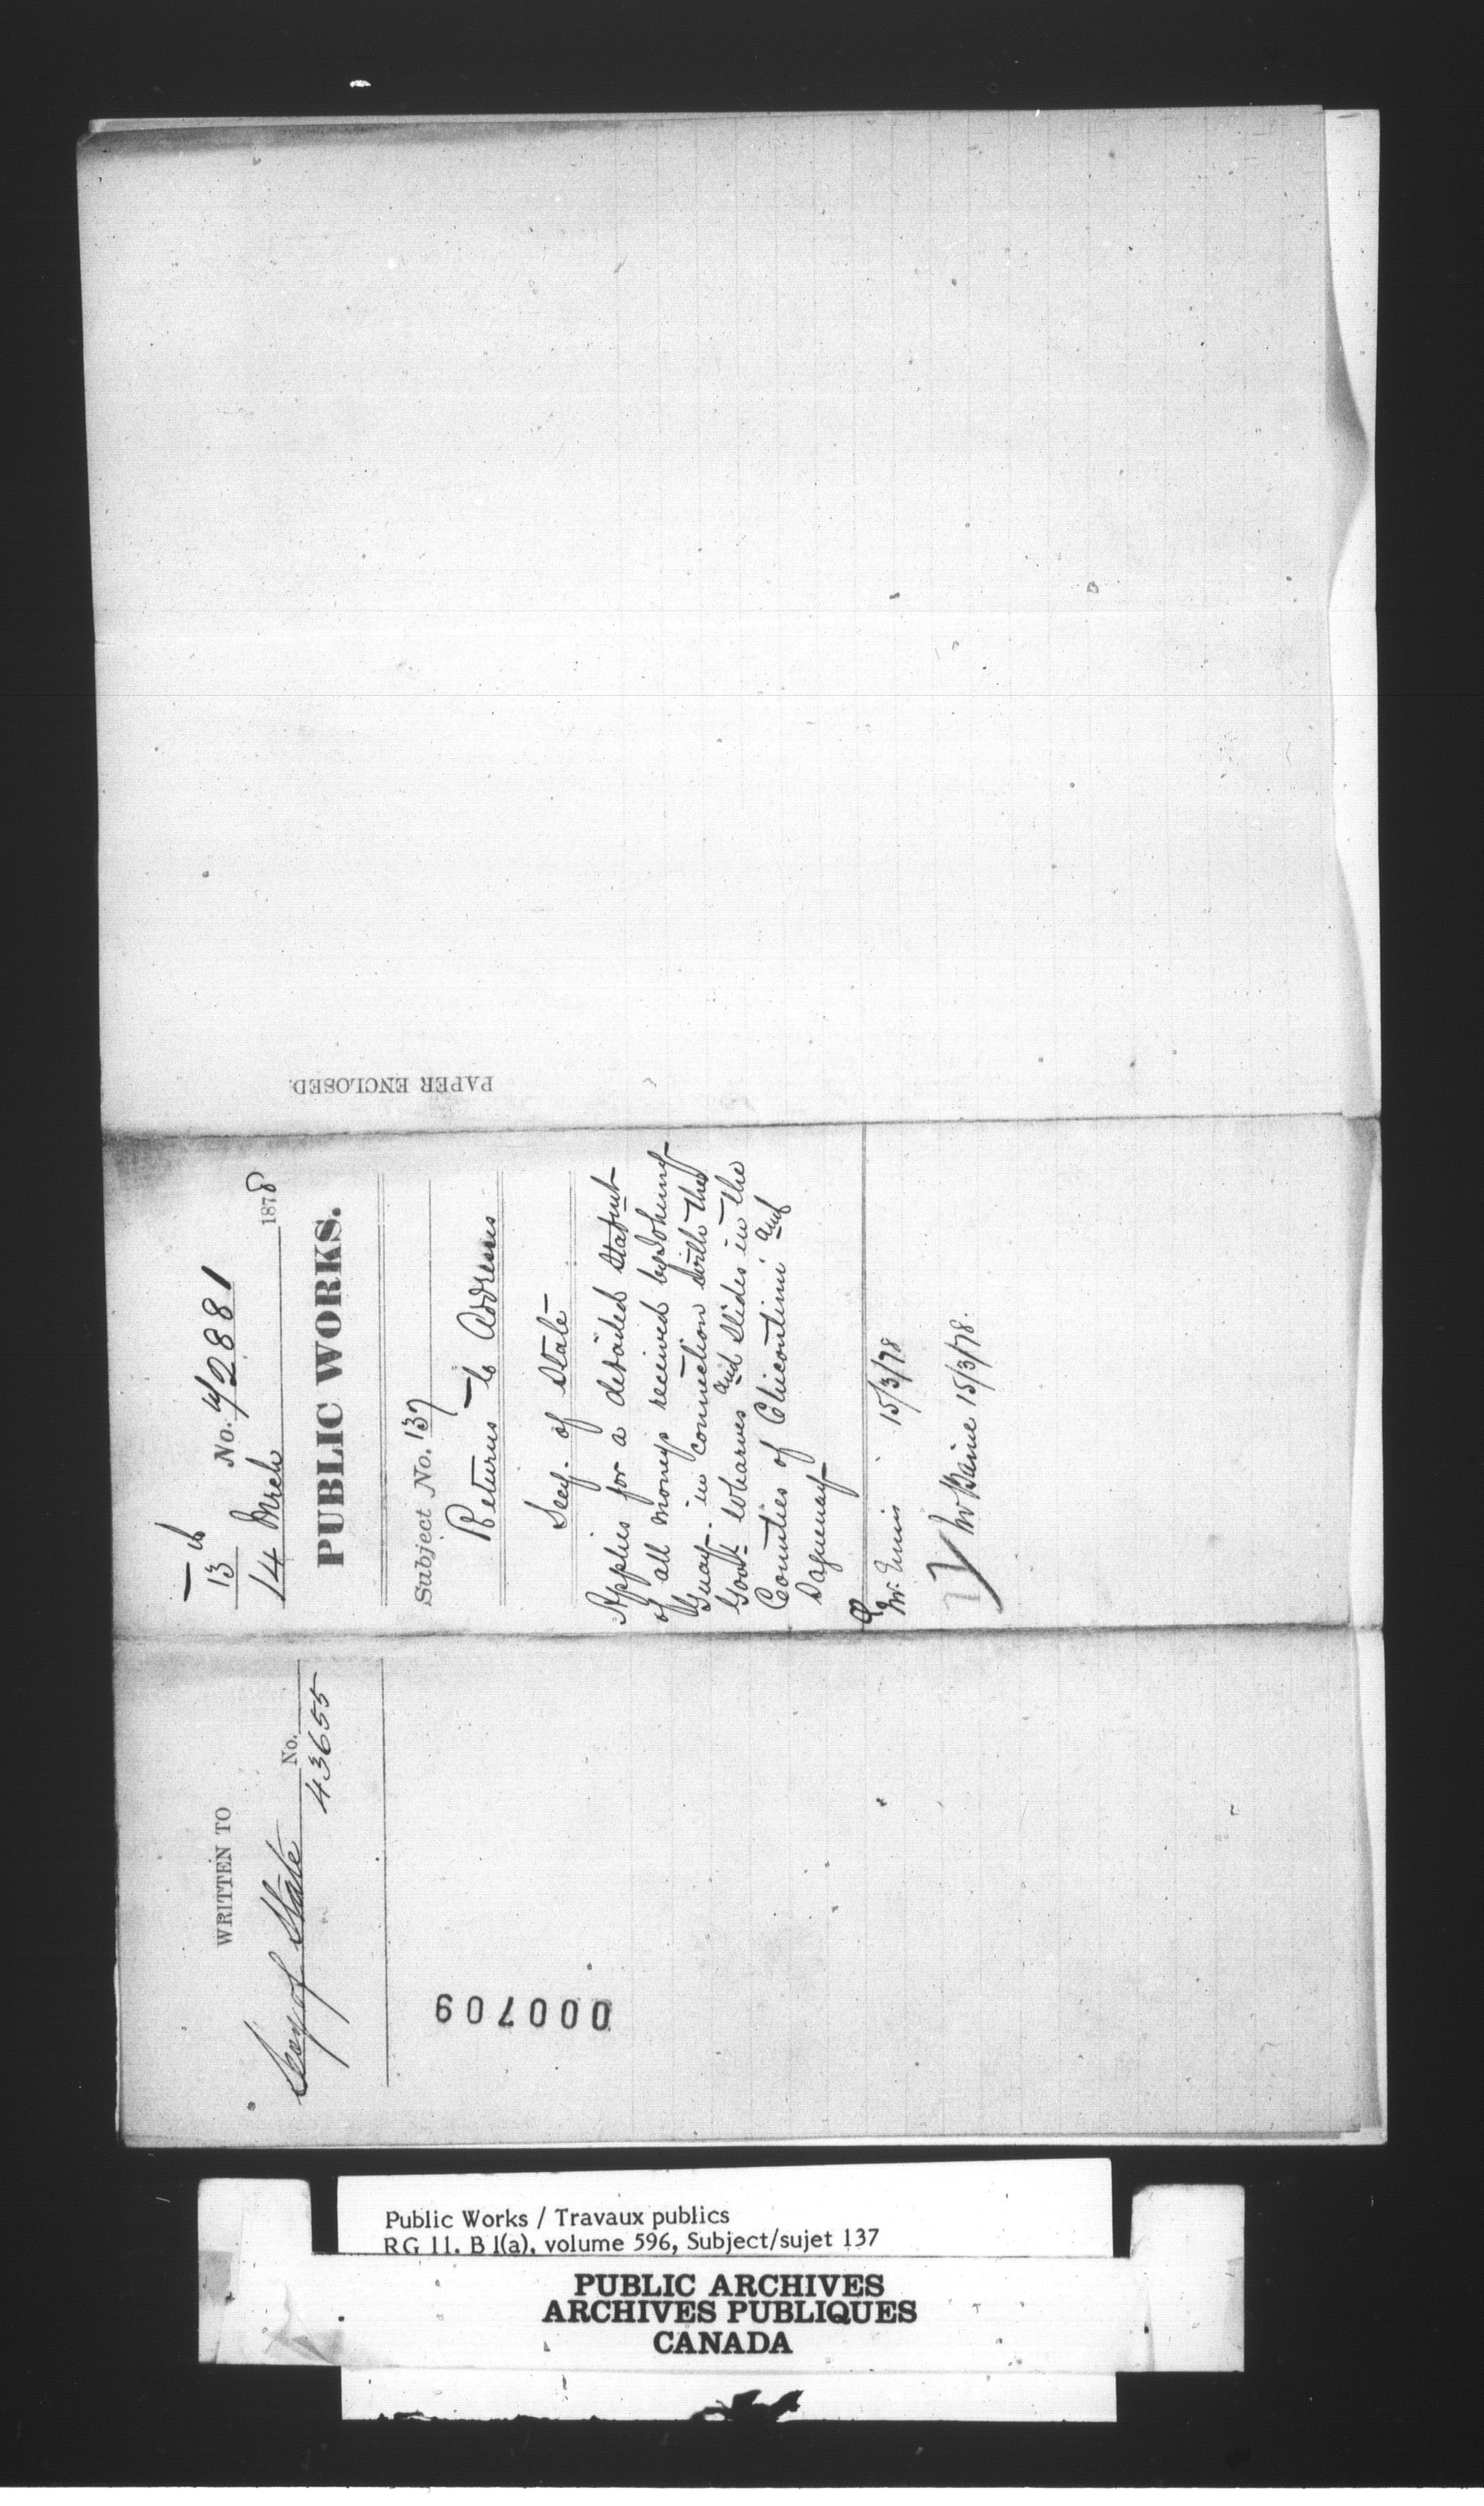 13 No. 72881
14 March 1878
PUBLIC WORKS.
Subject No. 137
Returns to Address
Secy. of State
Applies for a detailed Statmt
of all moneys received by Johnny
Guay in connection with the
Govt. Wharves and Slides in the
Counties of Chicoutimi and
Saguenay
Mr. Ennis 15/3/78
Mr Baine 15/3/78.
PAPER ENCLOSED.
WRITTEN TO
Secy of State No. 43655
000709
Public Works / Travaux publics
RG 11, B 1(a), volume 596, Subject/sujet 137
PUBLIC ARCHIVES
ARCHIVES PUBLIQUES
CANADA